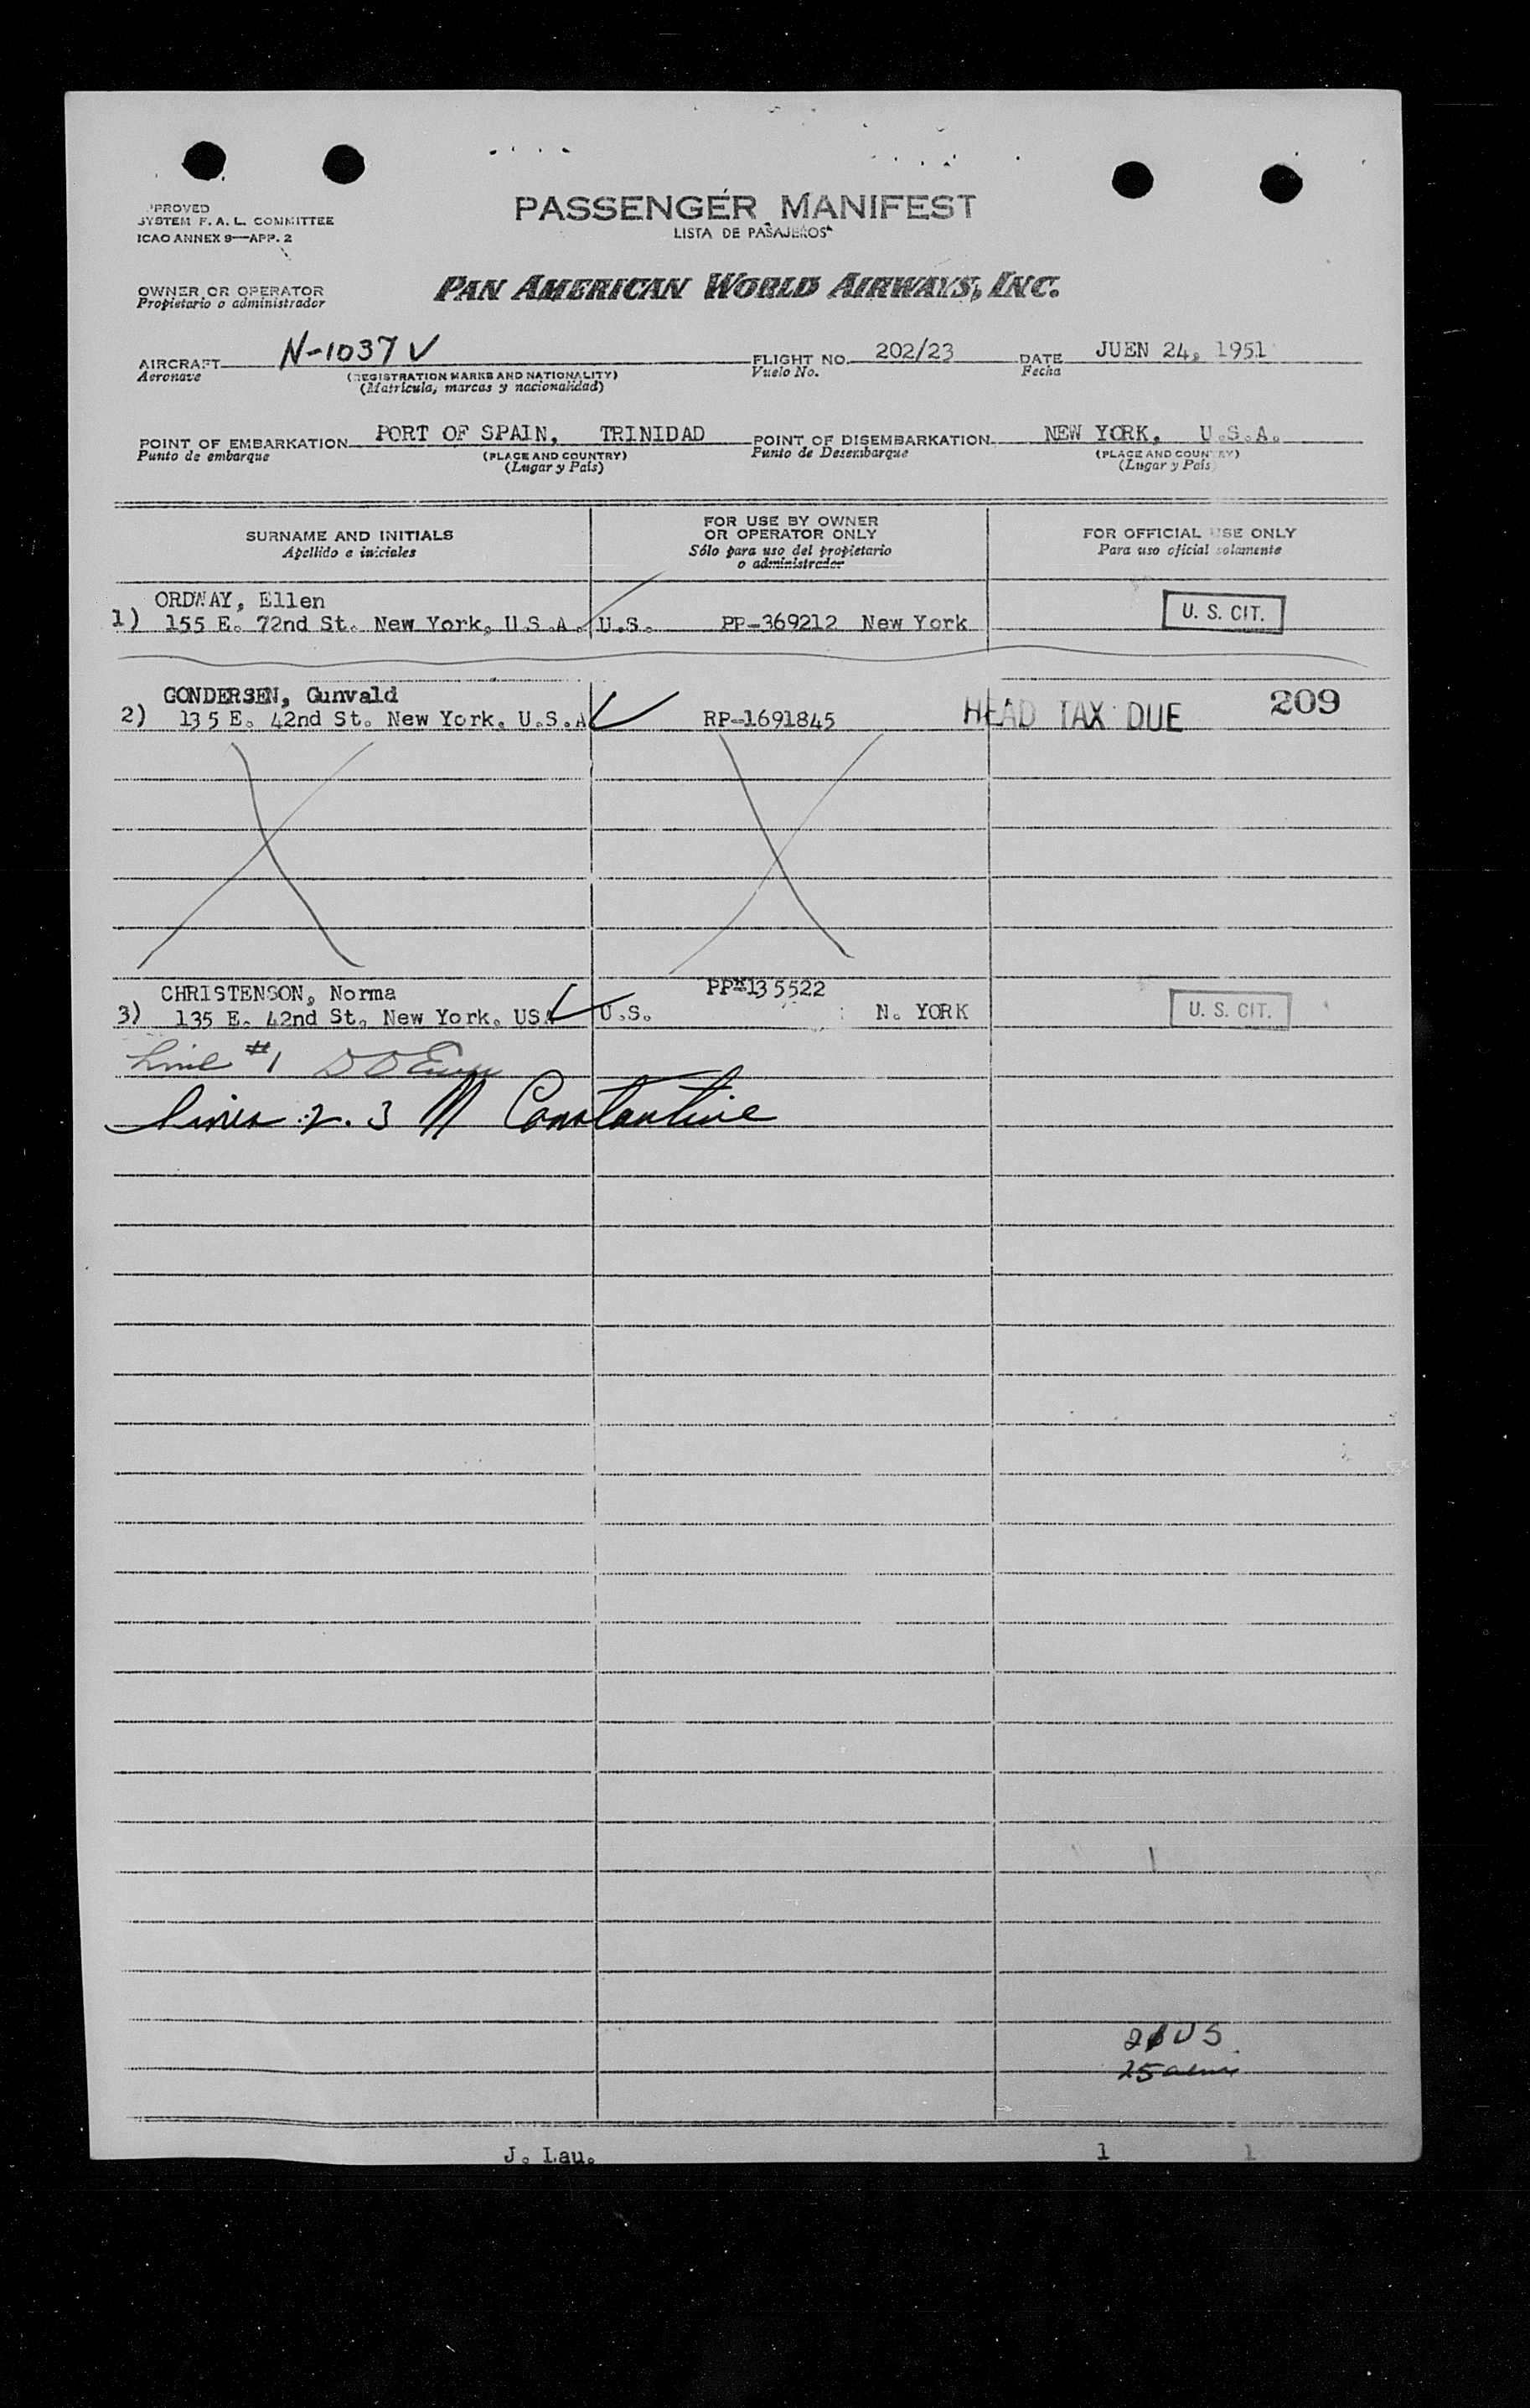 PASSENGER MANIFEST
LISTA DE PASAJEROS
PPROVED
SYSTEM F. A. L. COMMITTEE
ICAO ANNEX 9—APP. 2
OWNER OR OPERATOR
Propietario o administrador
PAN AMERICAN WORLD AIRWAYS, INC.
AIRCRAFT N-1037V FLIGHT NO. 202/23 DATE JUEN 24, 1951
Aeronave (REGISTRATION MARKS AND NATIONALITY) Vuelo No. Fecha
(Matrícula, marcas y nacionalidad)
POINT OF EMBARKATION PORT OF SPAIN, TRINIDAD POINT OF DISEMBARKATION NEW YORK, U.S.A.
Punto de embarque (PLACE AND COUNTRY) Punto de Desembarque (PLACE AND COUNTRY)
(Lugar y País) (Lugar y País)
SURNAME AND INITIALS
Apellido e iniciales
FOR USE BY OWNER
OR OPERATOR ONLY
Sólo para uso del propietario
o administrador
FOR OFFICIAL USE ONLY
Para uso oficial solamente
ORDWAY, Ellen
1) 155 E. 72nd St. New York, U.S.A. U.S. PP-369212 New York U. S. CIT.
GONDERSEN, Gunvald
2) 135 E. 42nd St. New York, U.S.A RP-1691845 HEAD TAX DUE 209
CHRISTENSON, Norma PP-135522
3) 135 E. 42nd St. New York, USA U.S. N. YORK U. S. CIT.
Line #1
lines 2. 3 M Constantine
US
25
J. Lau. 1 1